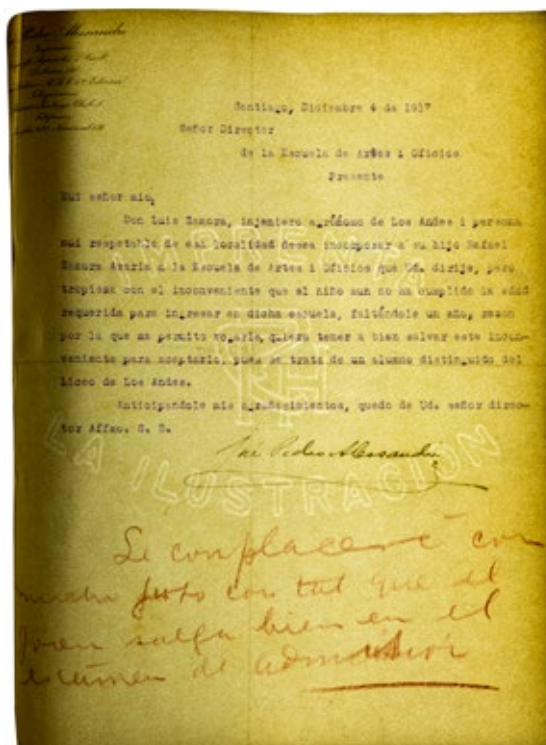 Pedro Alessandri
Santiago, Diciembre 4 de 1917
Señor Director
de la Escuela de Artes i Oficios
Presente
Mui señor mio,
Don Luis Zamora, injeniero agrónomo de Los Andes i persona
mui respetable de esa localidad desea incorporar a su hijo Rafael
Zamora a la Escuela de Artes i Oficios que Ud. dirije, pero
tropieza con el inconveniente que el niño aun no ha cumplido la edad
requerida para ingresar en dicha escuela, faltándole un año, razon
por la que me permito rogarle quiera tener a bien salvar este incon-
veniente para aceptarlo, pues se trata de un alumno distinguido del
Liceo de Los Andes.
Anticipándole mis agradecimientos, quedo de Ud. señor direc-
tor Affmo. S. S.
José Pedro Alessandri
Se complacerá con
mucho gusto con tal que el
joven salga bien en el
exámen de admision
IMPRENTA
LA ILUSTRACION